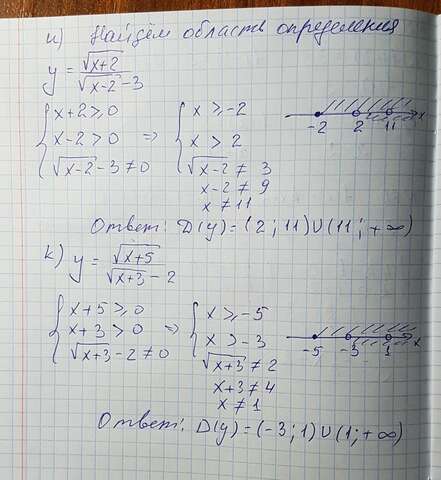 и) Найдём область определения
y = √(x+2) / (√(x-2) - 3)
{ x+2 ≥ 0
x-2 > 0
√(x-2) - 3 ≠ 0
⇒ { x ≥ -2
x > 2
√(x-2) ≠ 3
x-2 ≠ 9
x ≠ 11
-2 2 11 x
Ответ: D(y) = (2; 11) ∪ (11; +∞)
к) y = √(x+5) / (√(x+3) - 2)
{ x+5 ≥ 0
x+3 > 0
√(x+3) - 2 ≠ 0
⇒ { x ≥ -5
x > -3
√(x+3) ≠ 2
x+3 ≠ 4
x ≠ 1
-5 -3 1 x
Ответ: D(y) = (-3; 1) ∪ (1; +∞)